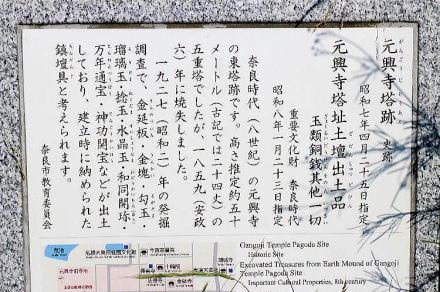 元興寺塔跡 史跡
昭和七年四月二十五日指定
元興寺塔址土壇出土品
玉類銅銭其他一切
重要文化財 奈良時代
昭和八年一月二十三日指定
奈良時代（八世紀）の元興寺
の東塔跡です。高さ推定約五十
メートル（古記では二十四丈）の
五重塔でしたが、一八五九（安政
六）年に焼失しました。
一九二七（昭和二）年の発掘
調査で、金延板・金塊・勾玉・
瑠璃玉・捻玉・水晶玉・和同開珎・
万年通宝・神功開宝などが出土
しており、建立時に納められた
鎮壇具と考えられます。
奈良市教育委員会
Gangoji Temple Pagoda Site
Historic Site
Excavated Treasures from Earth Mound of Gangoji
Temple Pagoda Site
Important Cultural Properties, 8th century